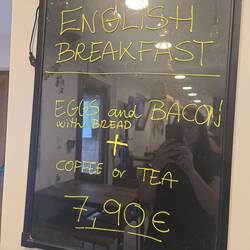 ENGLISH
BREAKFAST
EGGS and BACON
with BREAD
+
COFFEE or TEA
7,90€